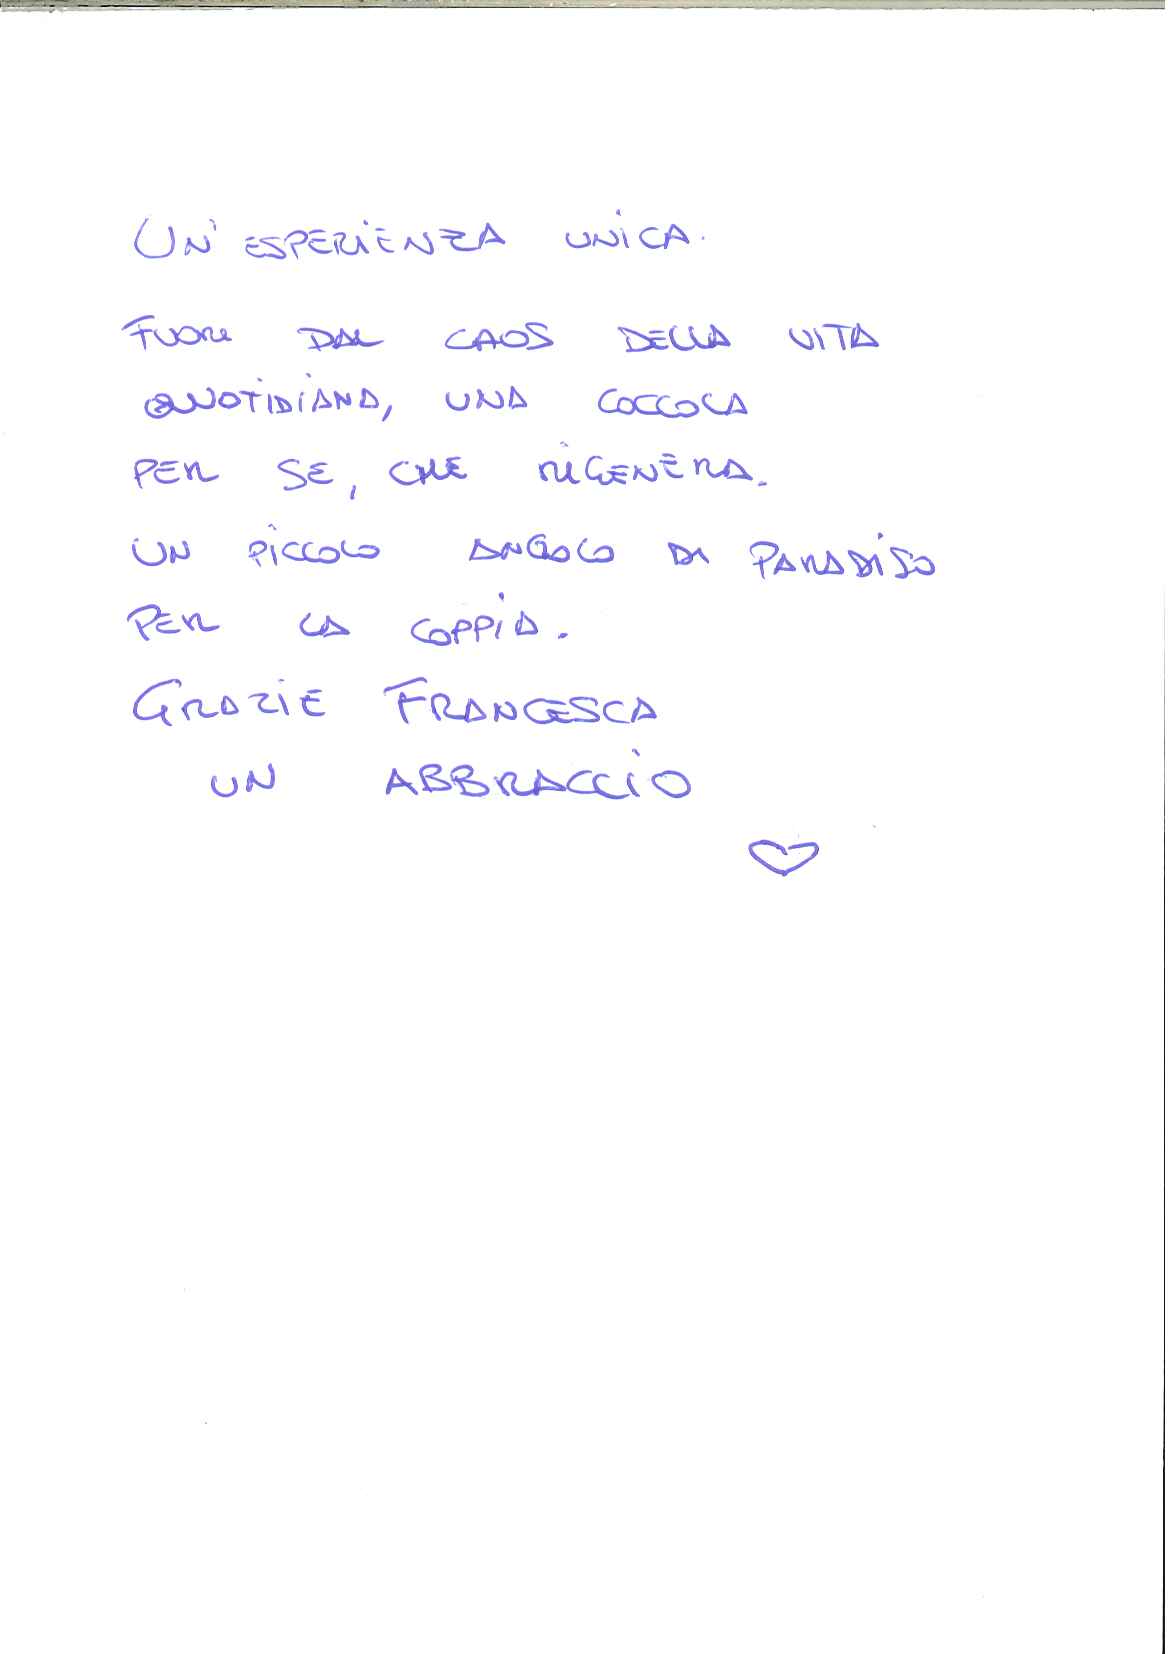 UN'ESPERIENZA UNICA.
FUORI DAL CAOS DELLA VITA
QUOTIDIANA, UNA COCCOLA
PER SE, CHE RIGENERA.
UN PICCOLO ANGOLO DI PARADISO
PER LA COPPIA.
GRAZIE FRANCESCA
UN ABBRACCIO